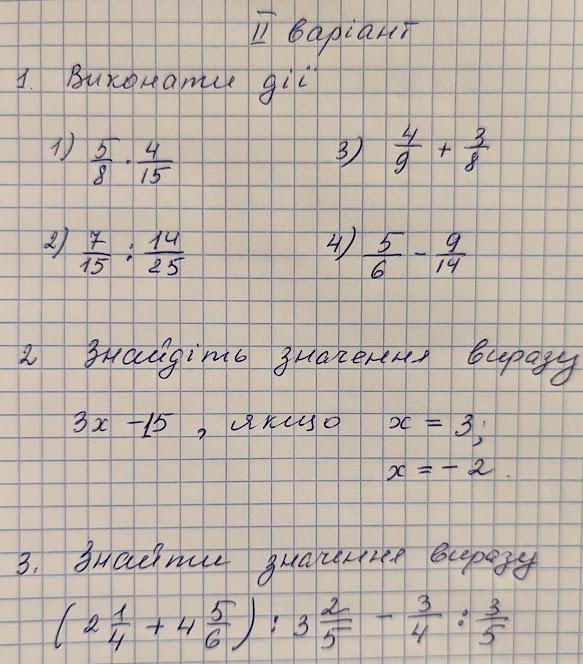 II варіант
1. Виконати дії
1) 5/8 · 4/15 3) 4/9 + 3/8
2) 7/15 : 14/25 4) 5/6 - 9/14
2 Знайдіть значення виразу
3x - 15, якщо x = 3;
x = - 2.
3. Знайти значення виразу
(2 1/4 + 4 5/6) : 3 2/5 - 3/4 : 3/5